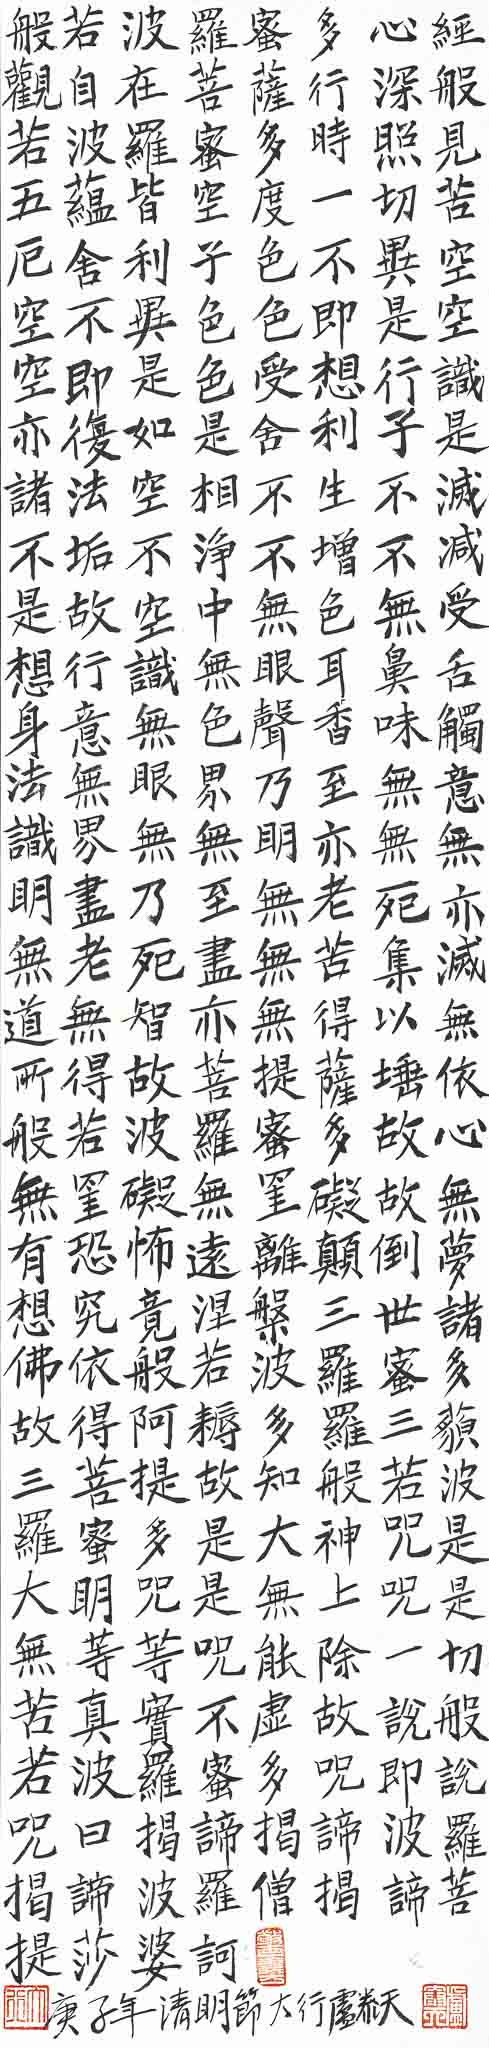 般若波羅蜜多心經
觀自在菩薩行深般
若波羅蜜多時照見
五蘊皆空度一切苦
厄舍利子色不異空
空不異色色即是空
空即是色受想行識
亦復如是舍利子是
諸法空相不生不滅
不垢不淨不增不減
是故空中無色無受
想行識無眼耳鼻舌
身意無色聲香味觸
法無眼界乃至無意
識界無無明亦無無
明盡乃至無老死亦
無老死盡無苦集滅
道無智亦無得以無
所得故菩提薩埵依
般若波羅蜜多故心
無罣礙無罣礙故無
有恐怖遠離顛倒夢
想究竟涅槃三世諸
佛依般若波羅蜜多
故得阿耨多羅三藐
三菩提故知般若波
羅蜜多是大神咒是
大明咒是無上咒是
無等等咒能除一切
苦真實不虛故說般
若波羅蜜多咒即說
咒曰揭諦揭諦波羅
揭諦波羅僧揭諦菩
提莎婆訶
庚子年清明節大行盧天